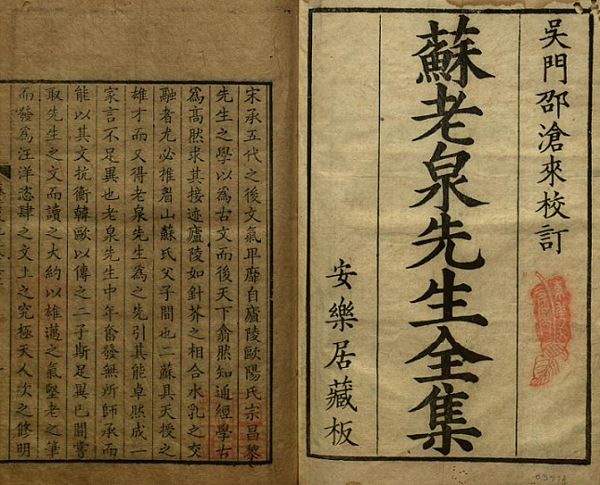 吳門邵滄來校訂
蘇老泉先生全集
安樂居藏板
宋承五代之後文氣卑靡自廬陵歐陽氏宗昌黎
先生之學以爲古文而後天下翕然知通經學古
爲高然求其接迹廬陵如針芥之相合水乳之交
融者尤必推眉山蘇氏父子間也二蘇具天授之
雄才而又得老泉先生爲之先引其能卓然成一
家言不足異也老泉先生中年奮發無所師承而
能以其文抗衡韓歐以傳之二子斯足異已間嘗
取先生之文而讀之大約以雄邁之氣堅老之筆
而發爲汪洋恣肆之文上之究極天人次之修明